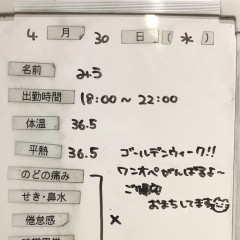 4 月 30 日 (水)
名前 みう
出勤時間 18:00〜22:00
体温 36.5
平熱 36.5
ゴールデンウィーク!!
ワンオペがんばるよ〜
のどの痛み
おまちしてます
せき・鼻水
倦怠感 ×